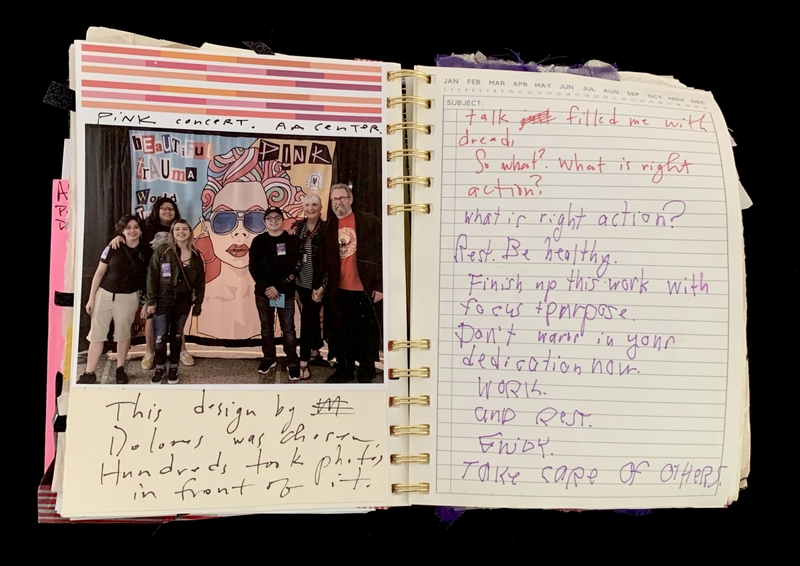 PINK CONCERT. AA CENTER.
BEAUTIFUL
TRAUMA
World
P!NK
This design by
Dolores was chosen.
Hundreds took photos
in front of it.
JAN FEB MAR APR MAY JUN JUL AUG SEP OCT NOV DEC
SUBJECT:
talk filled me with
dread.
So what? What is right
action?
what is right action?
Rest. Be healthy.
Finish up this work with
focus + purpose.
Don't waver in your
dedication now.
WORK.
and REST.
ENJOY.
TAKE CARE OF OTHERS.